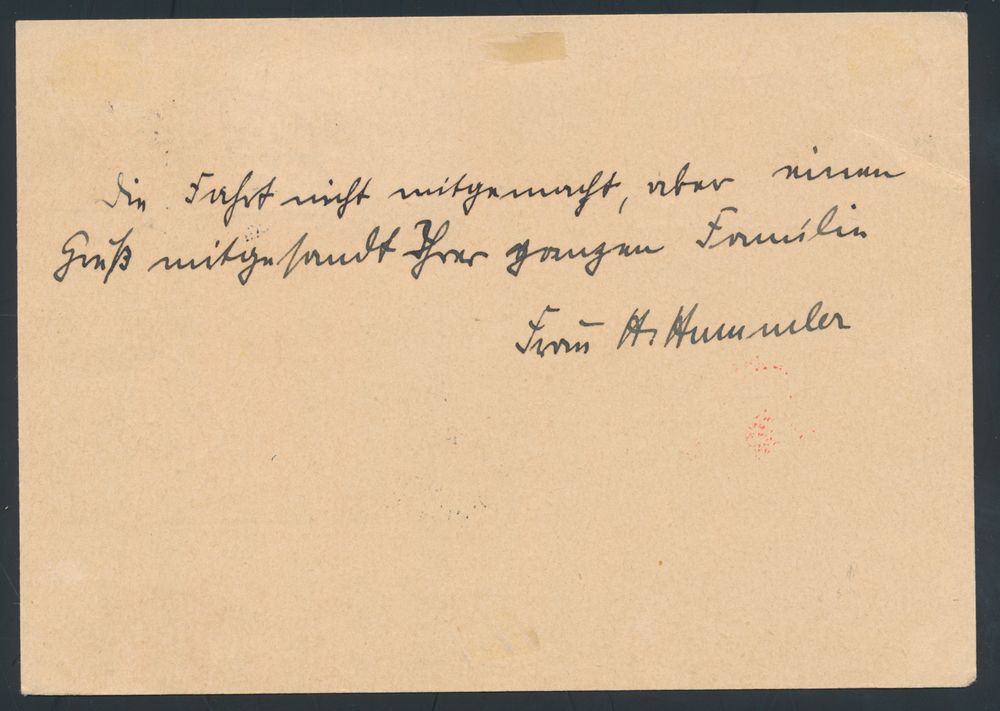 Die Fahrt nicht mitgemacht, aber einen
Gruß mitgesandt Ihrer ganzen Familie
Frau H. Hummler